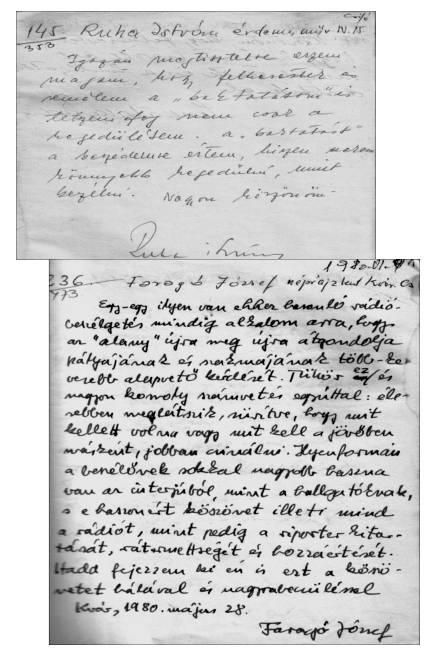 145
353
Ruha István érdemes műv. N. 15
Igazán megtisztelve érzem
magam, hogy felkerestek és
remélem a „bektatásom" is
tetszeni fog nem csak a
hegedülésem. a „
a beszédemre értem, hiszen nekem
könnyebb hegedülni, mint
beszélni. Nagyon köszönöm
Ruha István
1980.VI.
236
473
Faragó József néprajzkut. Kvár.
Egy-egy ilyen van ehhez hasonló rádió-
beszélgetés mindig alkalom arra, hogy
az "alany" újra meg újra átgondolja
pályájának és szakmájának több-ke-
vesebb alapvető kérdését. Tükör ez és
nagyon komoly számvetés egyúttal: éle-
sebben meglátszik, sűrítve, hogy mit
kellett volna vagy mit kell a jövőben
másként, jobban csinálni. Ilyenformán
a beszélőnek sokkal nagyobb haszna
van az interjúból, mint a hallgatóknak,
s e haszonért köszönet illeti mind
a rádiót, mint pedig a riporter kitar-
tását, rátermettségét és hozzáértését.
Hadd fejezzem ki én is ezt a köszö-
netet hálával és nagyrabecsüléssel
Kvár, 1980. május 28.
Faragó József